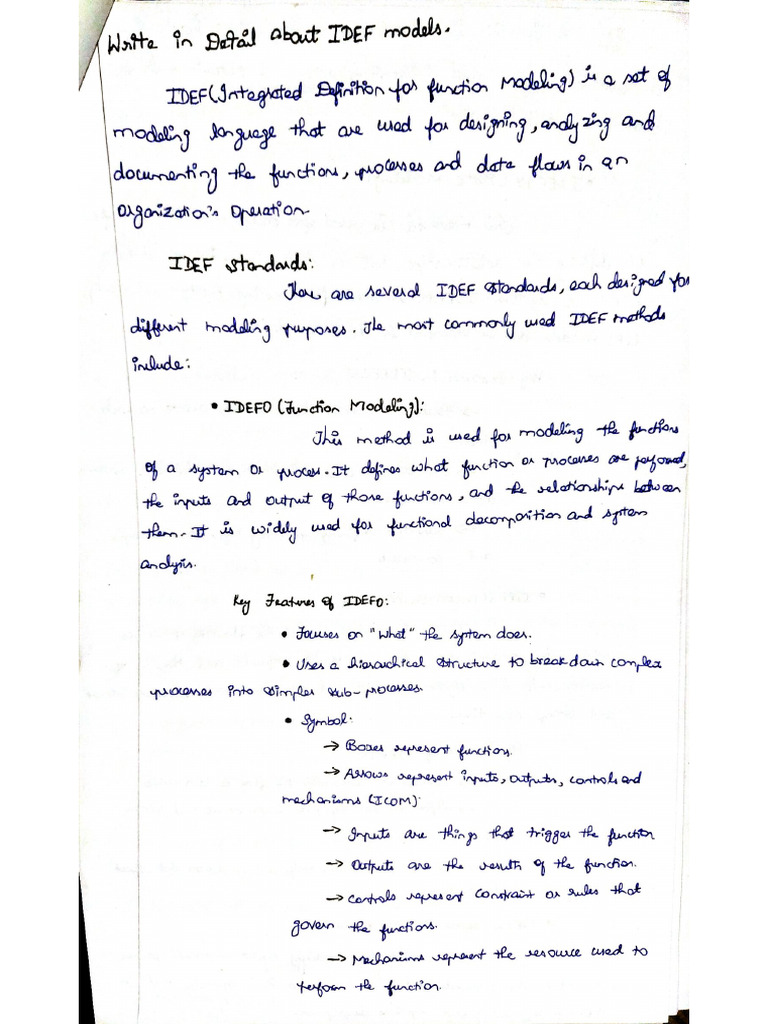 Write in Detail about IDEF models.
IDEF (Integrated Definition for function Modeling) is a set of
modeling language that are used for designing, analyzing and
documenting the functions, processes and data flows in an
organization's operation.
IDEF standards:
There are several IDEF standards, each designed for
different modeling purposes. The most commonly used IDEF methods
include:
• IDEF0 (Function Modeling):
This method is used for modeling the functions
of a system or process. It defines what function or processes are performed,
the inputs and output of those functions, and the relationships between
them. It is widely used for functional decomposition and system
analysis.
Key Features of IDEF0:
• Focuses on "what" the system does.
• Uses a hierarchical structure to break down complex
processes into simpler sub-processes.
• Symbol:
→ Boxes represent functions.
→ Arrows represent inputs, outputs, controls and
mechanisms (ICOM):
→ Inputs are things that trigger the function
→ Outputs are the result of the function.
→ Controls represent constraint or rules that
govern the functions.
→ Mechanisms represent the resource used to
perform the function.